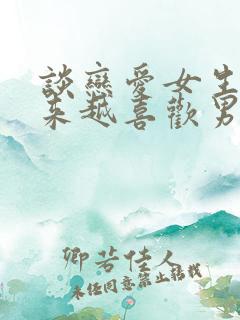 談戀愛女生
來越喜歡男
卿若佳人
未經同意禁止轉載